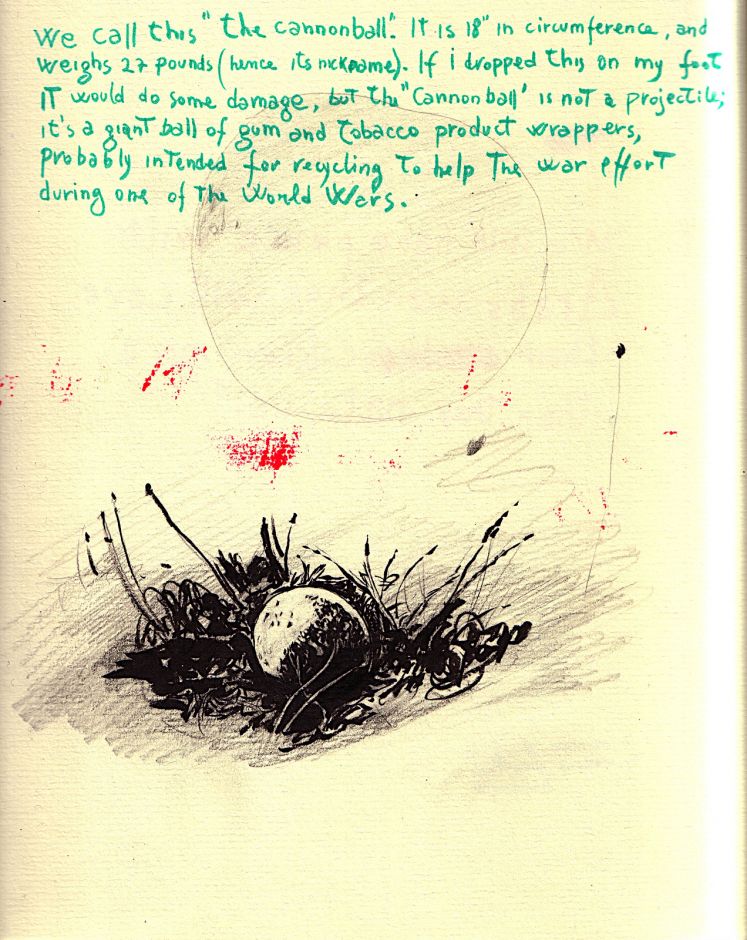 We call this "the cannonball". It is 18" in circumference, and
weighs 27 pounds (hence its nickname). If i dropped this on my foot
IT would do some damage, but the "Cannonball" is not a projectile;
it's a giant ball of gum and tobacco product wrappers,
probably intended for recycling to help the war effort
during one of the World Wars.